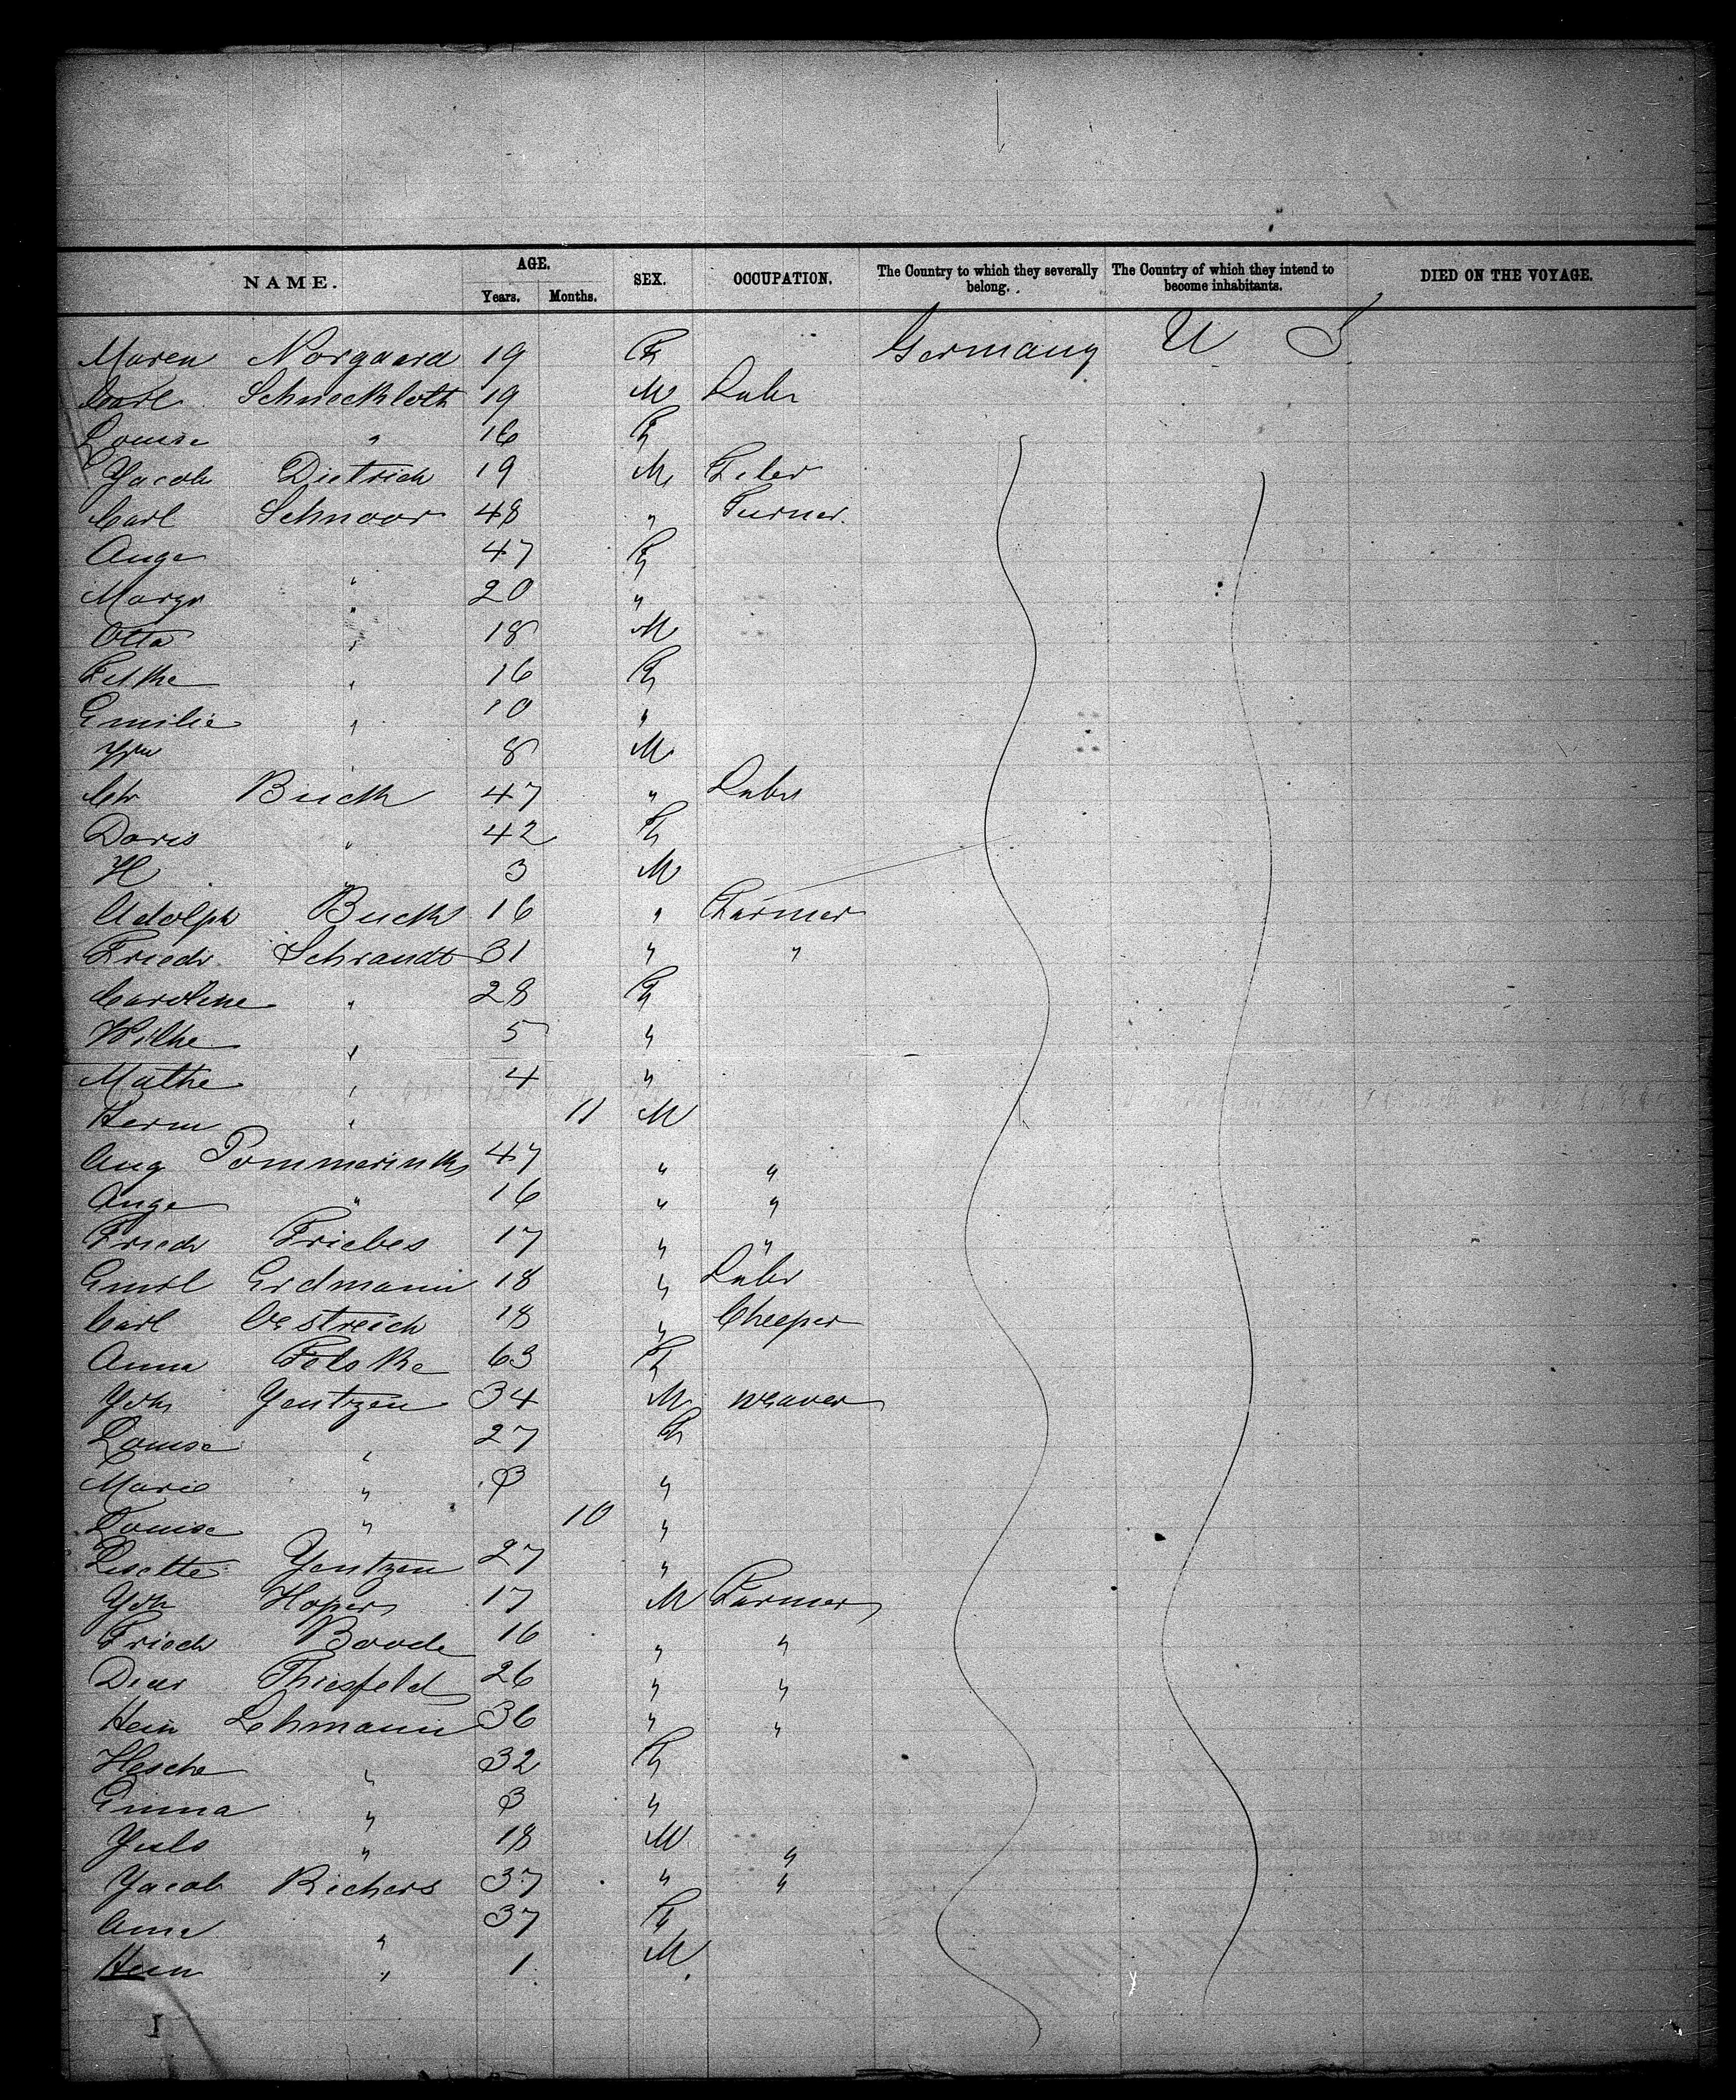 NAME. AGE. SEX. OCCUPATION. The Country to which they severally belong. The Country of which they intend to become inhabitants. DIED ON THE VOYAGE.
Years. Months.
Maren Norgaard 19 F Germany U S
Carl Schneekloth 19 M Labr
Louise " 16 F
Yacob Dietrich 19 M
Carl Schnoor 48 " Turner.
Auge 47 F
Margr " 20 "
Otto " 18 M
" 16 F
Emilie " 10 "
Wm " 8 M
Chr Buck 47 " Labr
Doris " 42 F
H " 3 M
Adolph Buck 16 " Farmer
Friedr Schrandt 31 " "
Caroline " 28 F
Wilhe " 5 "
Mathe " 4 "
Herm " 11 M
Aug Pommerink 47 " "
Auge " 16 " "
Friedr Friebes 17 " "
Emil Erdmann 18 " Labr
Carl Oestreich 18 "
Anna 63 F
Joh Yentzen 34 M weaver
Louise " 27 F
Marie " 3 "
Louise " 10 "
Lisette Yentzen 27 "
Joh Hopers 17 M Farmer
Friedr Boode 16 " "
Thiesfeld 26 " "
Hein Lehmann 36 " "
Hesche " 32 F
Emma " 3 "
Yuls " 18 M "
Yacob Richers 37 " "
" 37 F
Hein " 1 M